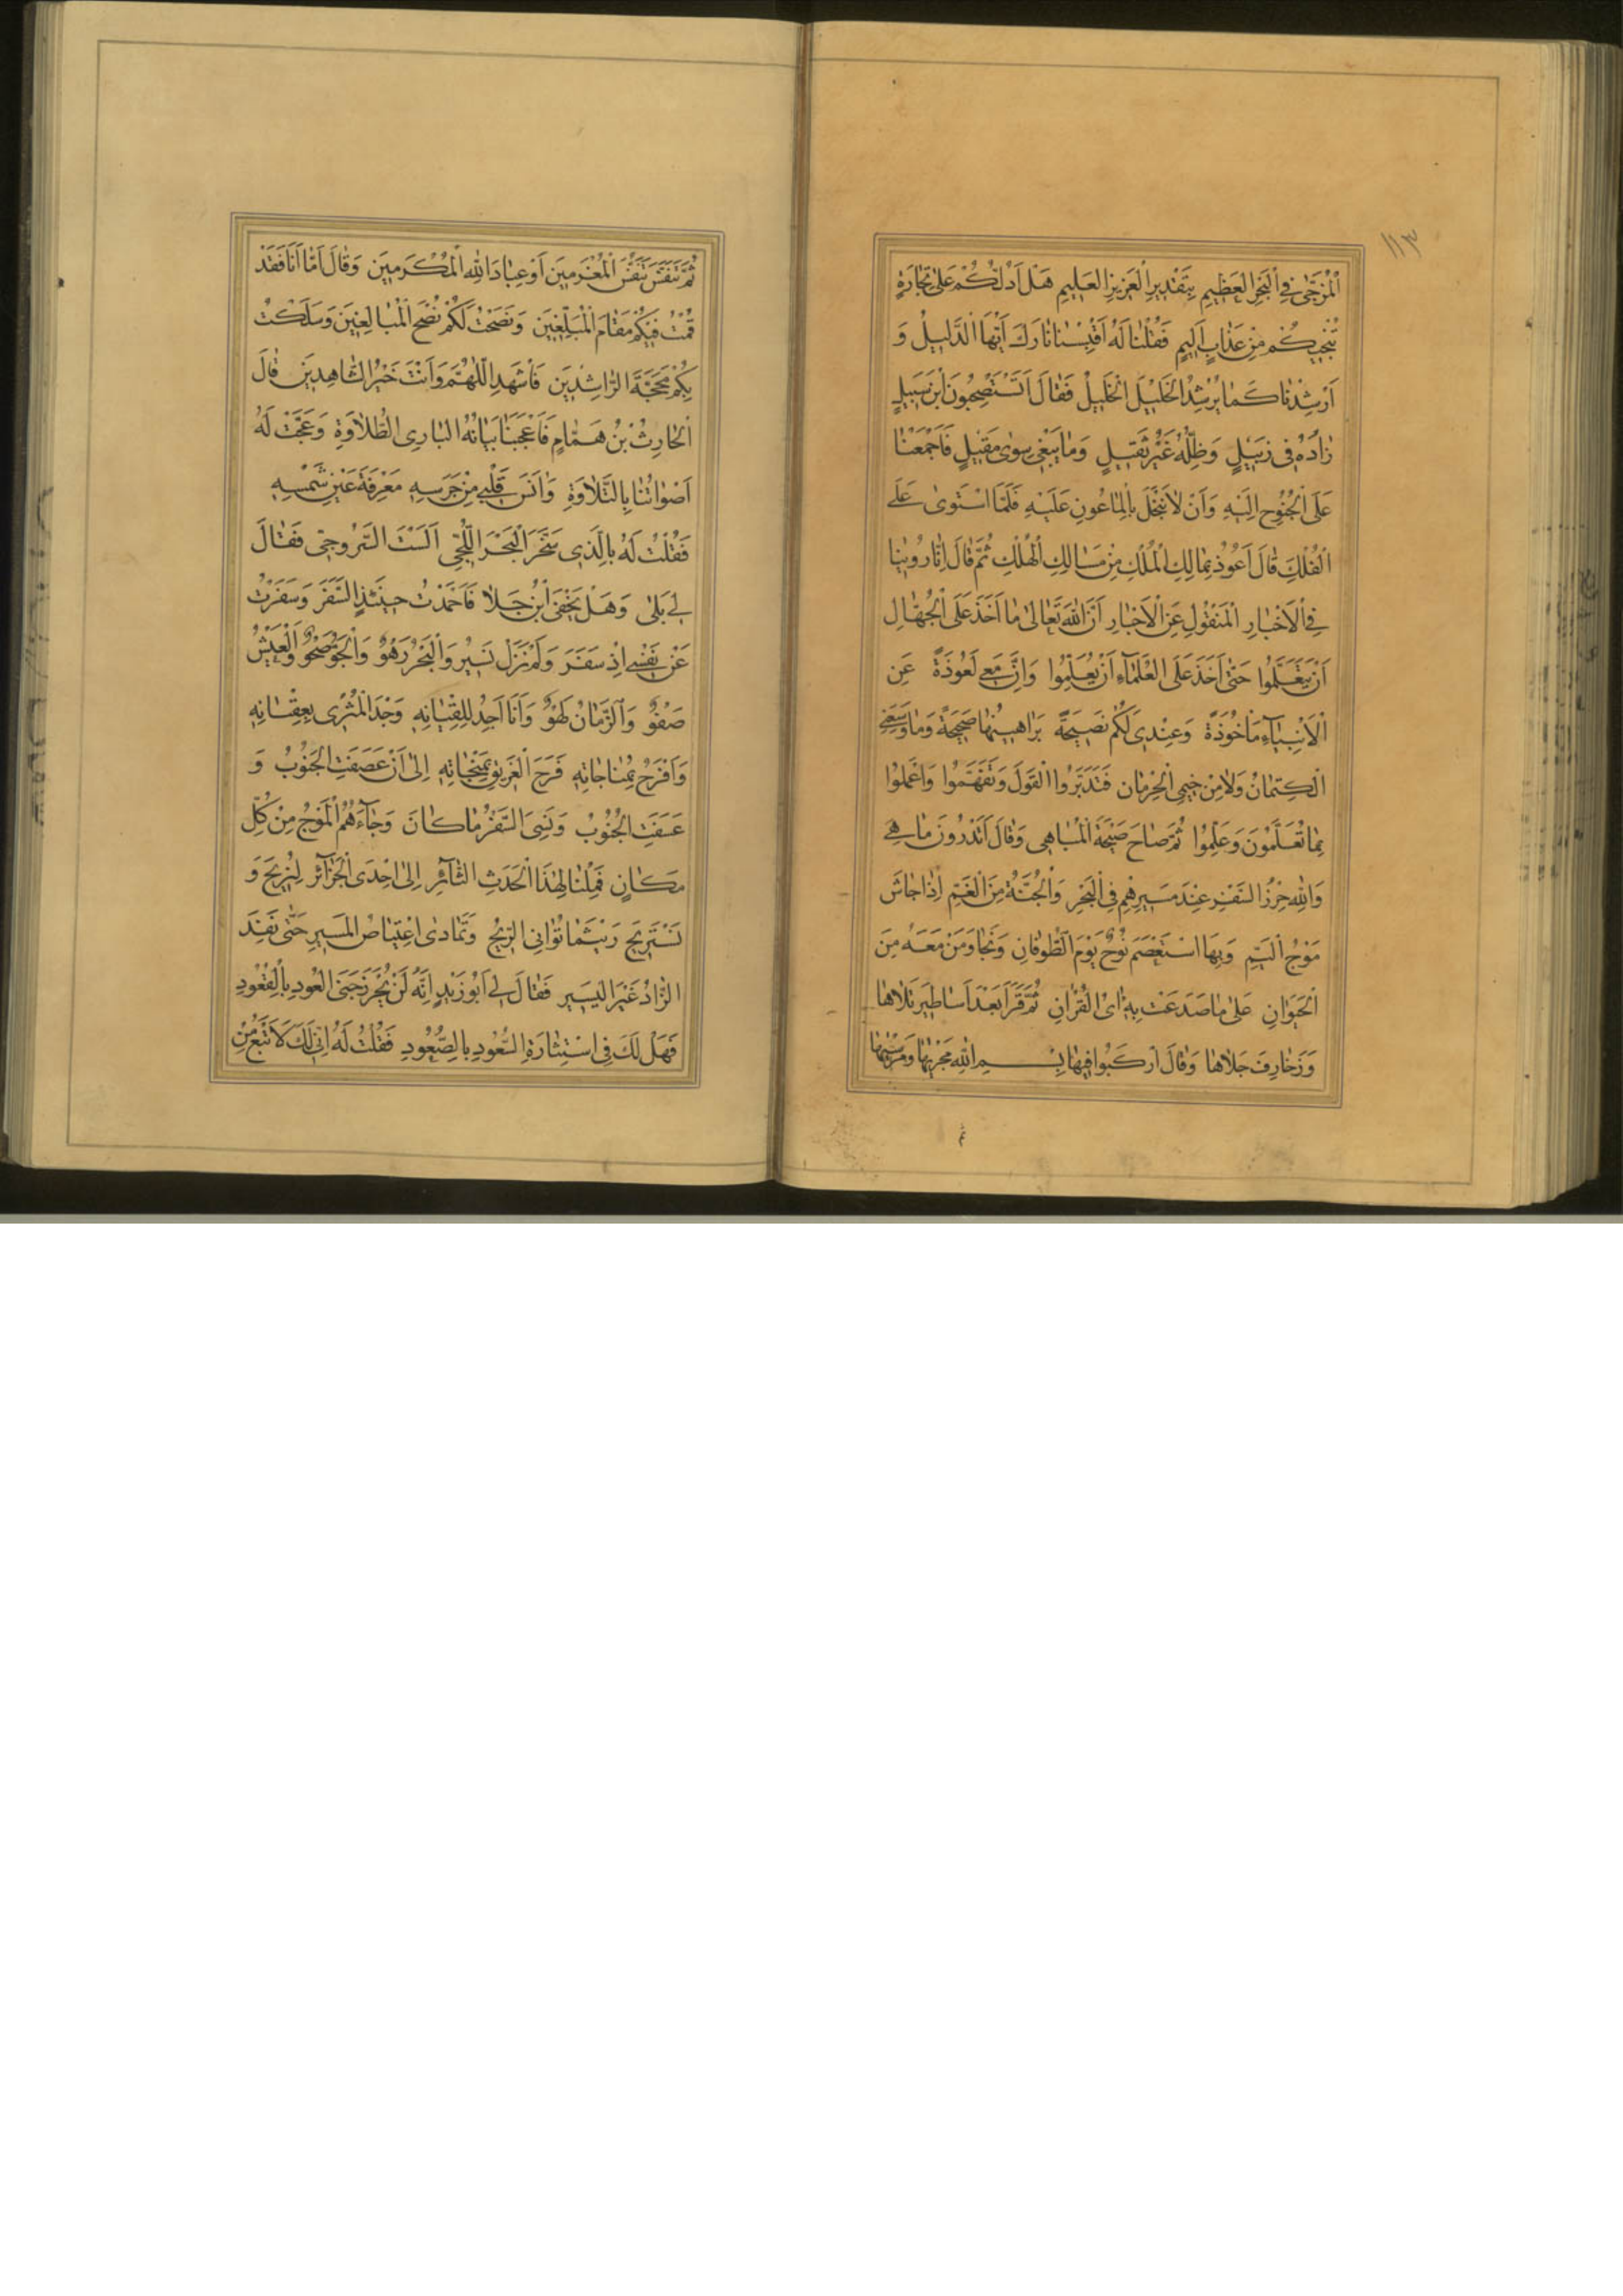 ١١٣
اَلْمُزْجٰى فِى الْبَحْرِ الْعَظِيمِ بِتَقْدِيرِ الْعَزِيزِ الْعَلِيمِ هَلْ اَدُلُّكُمْ عَلٰى تِجَارَةٍ
تُنْجِيكُمْ مِنْ عَذَابٍ اَلِيمٍ فَقُلْنَا لَهُ اَقْبِسْنَا نَارَكَ اَيُّهَا الدَّلِيلُ وَ
اَرْشِدْنَا كَمَا يُرْشِدُ الْخَلِيلَ الْخَلِيلُ فَقَالَ اَتَسْتَصْحِبُونَ ابْنَ سَبِيلٍ
زَادُهُ فِى زَبِيلٍ وَظِلُّهُ غَيْرُ ثَقِيلٍ وَمَا يَبْغِى سِوٰى مَقِيلٍ فَاَجْمَعْنَا
عَلَى الْجُنُوحِ اِلَيْهِ وَاَنْ لَا نَبْخَلَ بِالْمَاعُونِ عَلَيْهِ فَلَمَّا اسْتَوٰى عَلَى
الْفُلْكِ قَالَ اَعُوذُ بِمَالِكِ الْمُلْكِ مِنْ مَسَالِكِ الْهُلْكِ ثُمَّ قَالَ اِنَّا رُوِّينَا
فِى الْاَخْبَارِ الْمَنْقُولِ عَنِ الْاَحْبَارِ اَنَّ اللهَ تَعَالٰى مَا اَخَذَ عَلَى الْجُهَّالِ
اَنْ يَتَعَلَّمُوا حَتّٰى اَخَذَ عَلَى الْعُلَمَآءِ اَنْ يُعَلِّمُوا وَاِنَّ مَعِى لَعُوذَةً عَنِ
الْاَنْبِيَآءِ مَاْخُوذَةً وَعِنْدِى لَكُمْ نَصِيحَةً بَرَاهِينُهَا صَحِيحَةً وَمَا وَسِعَنِى
الْكِتْمَانُ وَلَا مِنْ خِيمِى الْحِرْمَانِ فَتَدَبَّرُوا الْقَوْلَ وَتَفَهَّمُوا وَاعْمَلُوا
بِمَا تُعَلَّمُونَ وَعَلِّمُوا ثُمَّ صَاحَ صَيْحَةَ الْمُبَاهِى وَقَالَ اَتَدْرُونَ مَا هِىَ
وَاللهِ حِرْزُ السَّفْرِ عِنْدَ مَسِيرِهِمْ فِى الْبَحْرِ وَالْجُنَّةُ مِنَ الْغَمِّ اِذَا جَاشَ
مَوْجُ الْيَمِّ وَبِهَا اسْتَعْصَمَ نُوحٌ يَوْمَ الطُّوفَانِ وَنَجَا وَمَنْ مَعَهُ مِنَ
الْحَيَوَانِ عَلٰى مَا صَدَعَتْ بِهِ اٰىُ الْقُرْاٰنِ ثُمَّ قَرَاَ بَعْدَ اَسَاطِيرَ تَلَاهَا
وَزَخَارِفَ جَلَاهَا وَقَالَ ارْكَبُوا فِيهَا بِسْمِ اللهِ مَجْرٰيهَا وَمُرْسٰيهَا
ثم
ثُمَّ تَنَفَّسَ تَنَفُّسَ الْمُغْرَمِينَ اَوْ عِبَادَ اللهِ الْمُكْرَمِينَ وَقَالَ اَمَّا اَنَا فَقَدْ
قُمْتُ فِيكُمْ مَقَامَ الْمُبَلِّغِينَ وَنَصَحْتُ لَكُمْ نُصْحَ الْمُبَالِغِينَ وَسَلَكْتُ
بِكُمْ مَحَجَّةَ الرَّاشِدِينَ فَاشْهَدِ اللّٰهُمَّ وَاَنْتَ خَيْرُ الشَّاهِدِينَ قَالَ
الْحَارِثُ بْنُ هَمَّامٍ فَاَعْجَبَنَا بَيَانُهُ الْبَادِى الطُّلَاوَةِ وَعَجَّتْ لَهُ
اَصْوَاتُنَا بِالتِّلَاوَةِ وَاٰنَسَ قَلْبِى مِنْ جَرْسِهِ مَعْرِفَةَ عَيْنِ شَمْسِهِ
فَقُلْتُ لَهُ بِالَّذِى سَخَّرَ الْبَحْرَ اللُّجِّىَّ اَلَسْتَ السَّرُوجِىَّ فَقَالَ
لِى بَلٰى وَهَلْ يَخْفَى ابْنُ جَلَا فَاَحْمَدْتُ حِينَئِذٍ السَّفَرَ وَسَفَرْتُ
عَنْ نَفْسِى اِذْ سَفَرَ وَلَمْ نَزَلْ نَسِيرُ وَالْبَحْرُ رَهْوٌ وَالْجَوُّ صَحْوٌ وَالْعَيْشُ
صَفْوٌ وَالزَّمَانُ لَهْوٌ وَاَنَا اَجِدُ لِلِقْيَانِهِ وَجْدَ الْمُثْرِى بِعِقْيَانِهِ
وَاَفْرَحُ بِمُنَاجَاتِهِ فَرَحَ الْغَرِيقِ بِمَنْجَاتِهِ اِلٰى اَنْ عَصَفَتِ الْجَنُوبُ وَ
عَسَفَتِ الْجُنُوبُ وَنَسِىَ السَّفْرُ مَا كَانَ وَجَآءَهُمُ الْمَوْجُ مِنْ كُلِّ
مَكَانٍ فَمِلْنَا لِهٰذَا الْحَدَثِ الثَّائِرِ اِلٰى اِحْدَى الْجَزَآئِرِ لِنُرِيحَ وَ
نَسْتَرِيحَ رَيْثَمَا تُوَاتِى الرِّيحُ وَتَمَادٰى اعْتِيَاصُ الْمَسِيرِ حَتّٰى نَفِدَ
الزَّادُ غَيْرَ الْيَسِيرِ فَقَالَ لِى اَبُو زَيْدٍ اِنَّهُ لَنْ يُحْرَزَ جَنَى الْعُودِ بِالْقُعُودِ
فَهَلْ لَكَ فِى اسْتِثَارَةِ السُّعُودِ بِالصُّعُودِ فَقُلْتُ لَهُ اِنِّى لَكَ لَاَتْبَعُ مِنْ